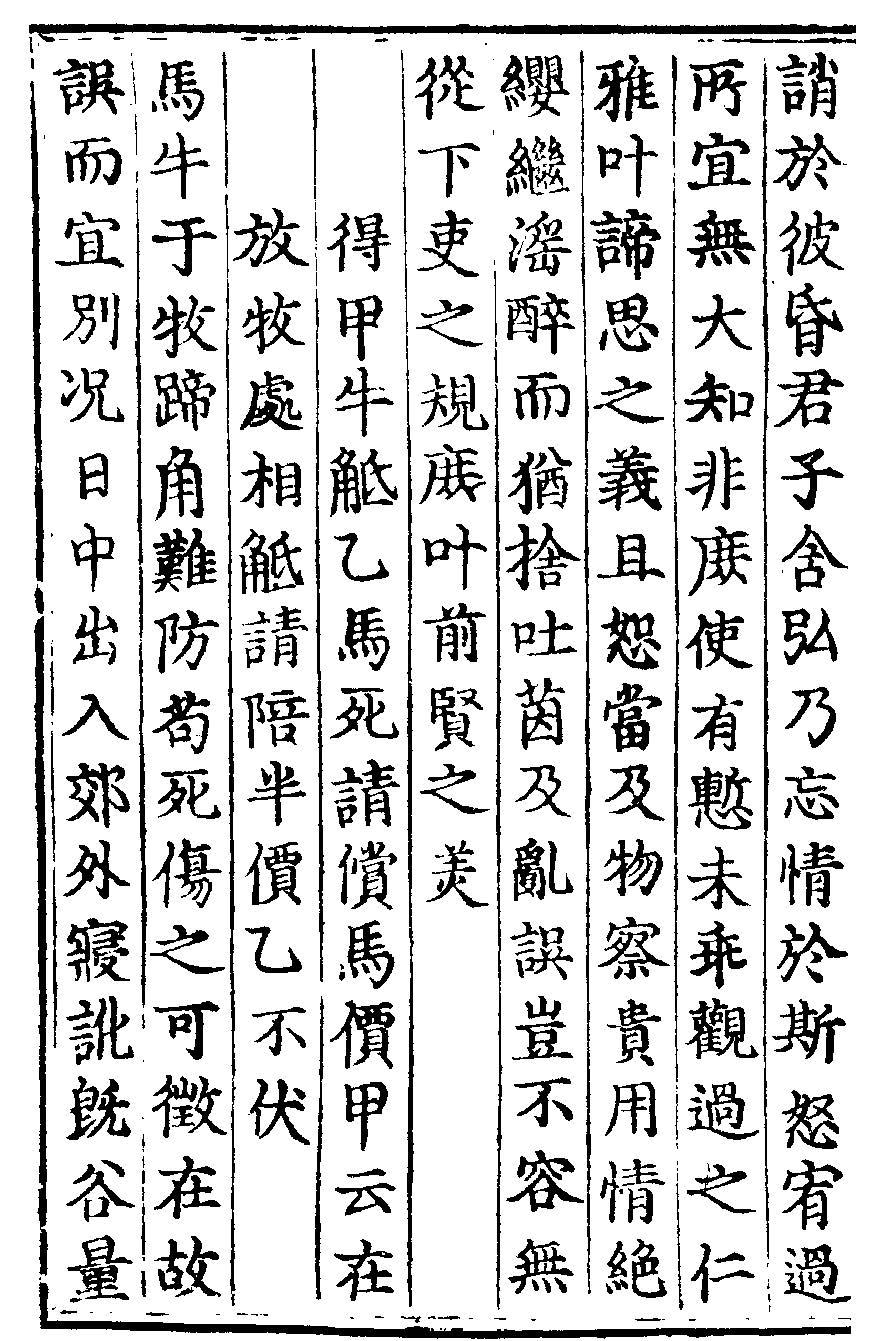 誚於彼昏君子舍弘乃忘情於斯怒宥過
所宜無大知非庻使有慙未乖觀過之仁
雅叶諦思之義且恕當及物察貴用情絶
纓繼滛醉而猶捨吐茵及亂誤豈不容無
從下吏之規庻叶前賢之羙
得甲牛觝乙馬死請償馬價甲云在
放牧處相觝請陪半價乙不伏
馬牛于牧蹄角難防苟死傷之可徵在故
誤而宜別况日中出入郊外寢訛旣谷量